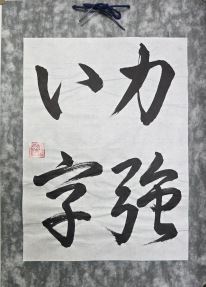 力強
い字